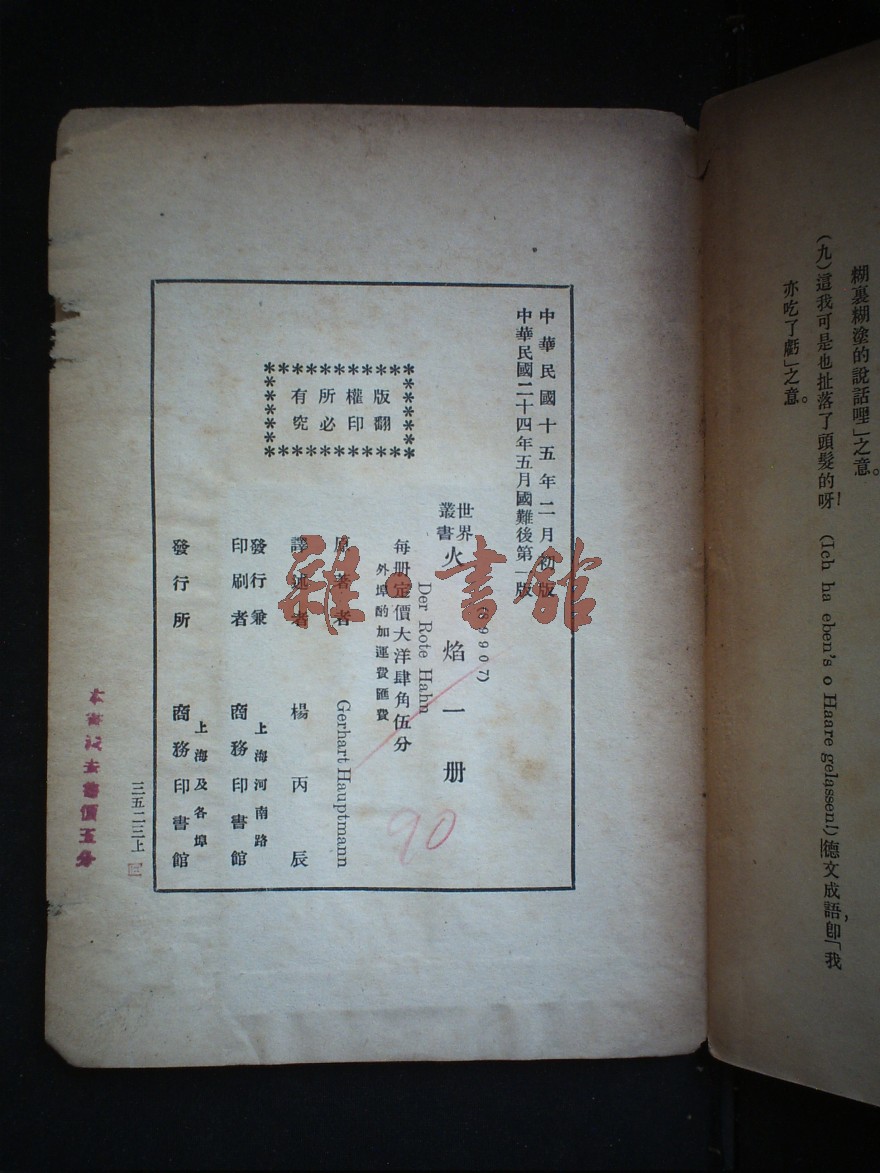 糊裏糊塗的說話哩」之意。
(九)這我可是也扯落了頭髮的呀! (Ich ha eben's o Haare gelassen!)德文成語,卽「我
亦吃了虧」之意。
中華民國十五年二月初版
中華民國二十四年五月國難後第一版
世界
叢書
火焰一册
Der Rote Hahn
每册定價大洋肆角伍分
外埠酌加運費匯費
版權所有
翻印必究
原著者 Gerhart Hauptmann
譯述者 楊丙辰
發行兼
印刷者
上海河南路
商務印書館
發行所
上海及各埠
商務印書館
三五二三上
90
雜·書館